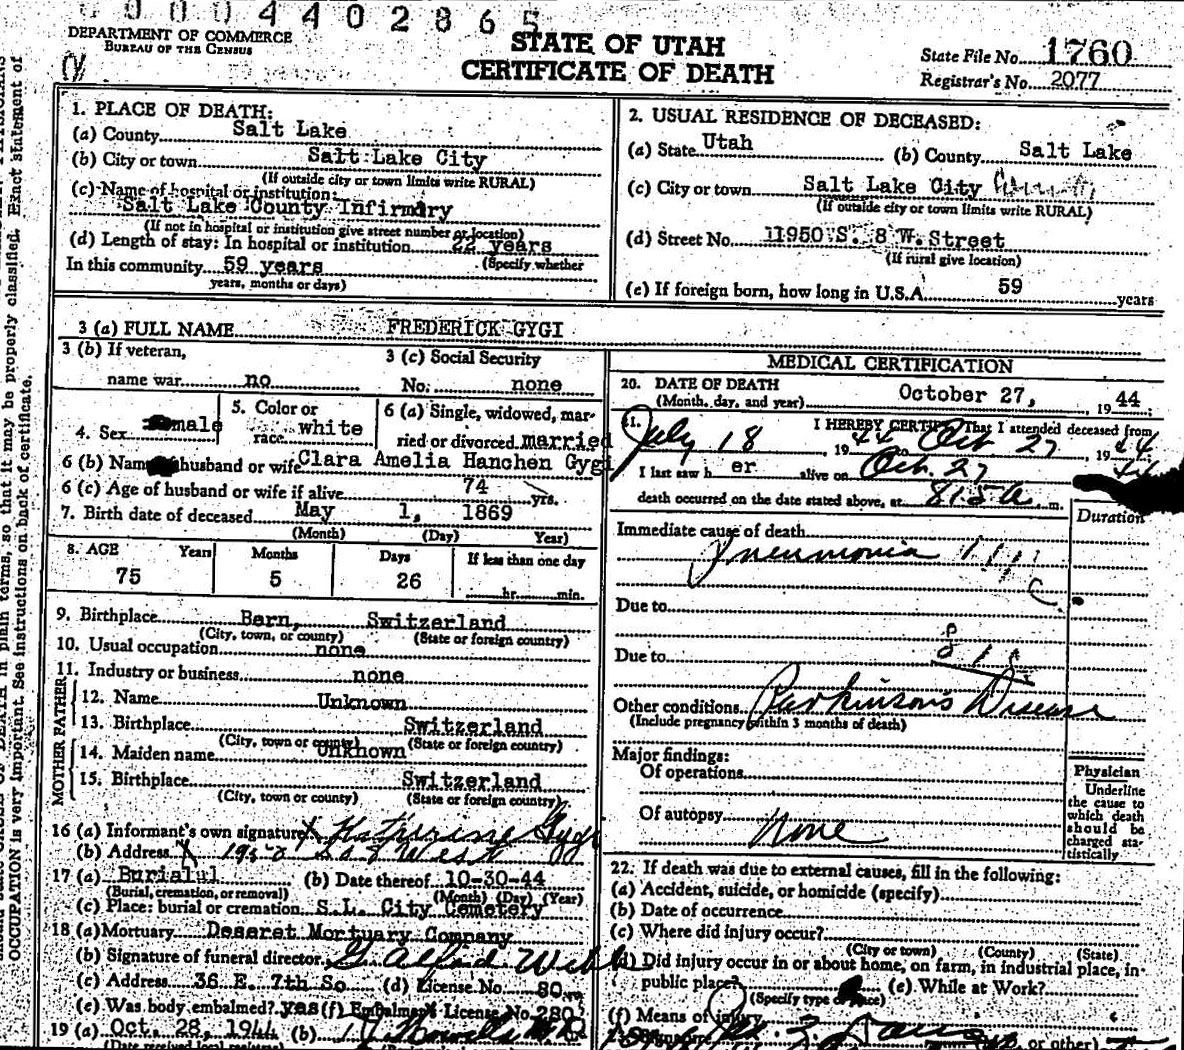 0 0 0 4 4 0 2 8 6 5
DEPARTMENT OF COMMERCE
BUREAU OF THE CENSUS
STATE OF UTAH
CERTIFICATE OF DEATH
State File No. 1760
Registrar's No. 2077
1. PLACE OF DEATH:
(a) County Salt Lake
(b) City or town Salt Lake City
(If outside city or town limits write RURAL)
(c) Name of hospital or institution:
Salt Lake County Infirmary
(If not in hospital or institution give street number or location)
(d) Length of stay: In hospital or institution 22 years
(Specify whether
In this community 59 years
years, months or days)
2. USUAL RESIDENCE OF DECEASED:
(a) State Utah (b) County Salt Lake
(c) City or town Salt Lake City
(If outside city or town limits write RURAL)
(d) Street No. 11950 S. 8 W. Street
(If rural give location)
(e) If foreign born, how long in U.S.A. 59 years
3 (a) FULL NAME FREDERICK GYGI
3 (b) If veteran,
name war no
3 (c) Social Security
No. none
4. Sex male
5. Color or
race white
6 (a) Single, widowed, mar-
ried or divorced married
6 (b) Name husband or wife Clara Amelia Hanchen Gygi
6 (c) Age of husband or wife if alive 74 yrs.
7. Birth date of deceased May 1, 1869
(Month) (Day) Year)
8. AGE Years Months Days If less than one day
75 5 26 hr. min.
9. Birthplace Bern, Switzerland
(City, town, or county) (State or foreign country)
10. Usual occupation none
11. Industry or business none
FATHER
12. Name Unknown
13. Birthplace Switzerland
(City, town or county) (State or foreign country)
MOTHER
14. Maiden name Unknown
15. Birthplace Switzerland
(City, town or county) (State or foreign country)
16 (a) Informant's own signature X Katherine Gygi
(b) Address X So 8 West
17 (a) Burialul (b) Date thereof 10-30-44
(Burial, cremation, or removal) (Month) (Day) (Year)
(c) Place: burial or cremation S.L. City Cemetery
18 (a) Mortuary Deseret Mortuary Company
(b) Signature of funeral director G. Alfred Webb
(c) Address 36 E. 7th So (d) License No. 80
(e) Was body embalmed? yes (f) Embalmer's License No. 280
19 (a) Oct. 28, 1944 (b)
(Date received local registrar)
MEDICAL CERTIFICATION
20. DATE OF DEATH
(Month, day, and year) October 27, 1944
21. I HEREBY CERTIFY That I attended deceased from
July 18, 1944 to Oct 27, 1944
I last saw h er alive on Oct. 27 44
death occurred on the date stated above, at 815 a. m.
Duration
Immediate cause of death
Pneumonia
Due to
Due to
Other conditions Parkinson's Disease
(Include pregnancy within 3 months of death)
Major findings:
Of operations
Of autopsy None
Physician
Underline
the cause to
which death
should be
charged sta-
tistically
22. If death was due to external causes, fill in the following:
(a) Accident, suicide, or homicide (specify)
(b) Date of occurrence
(c) Where did injury occur?
(City or town) (County) (State)
(d) Did injury occur in or about home, on farm, in industrial place, in
public place? (e) While at Work?
(Specify type of place)
(f) Means of injury
or other)
OF DEATH in plain terms, so that it may be properly classified. Exact statement of
OCCUPATION is very important. See instructions on back of certificate.